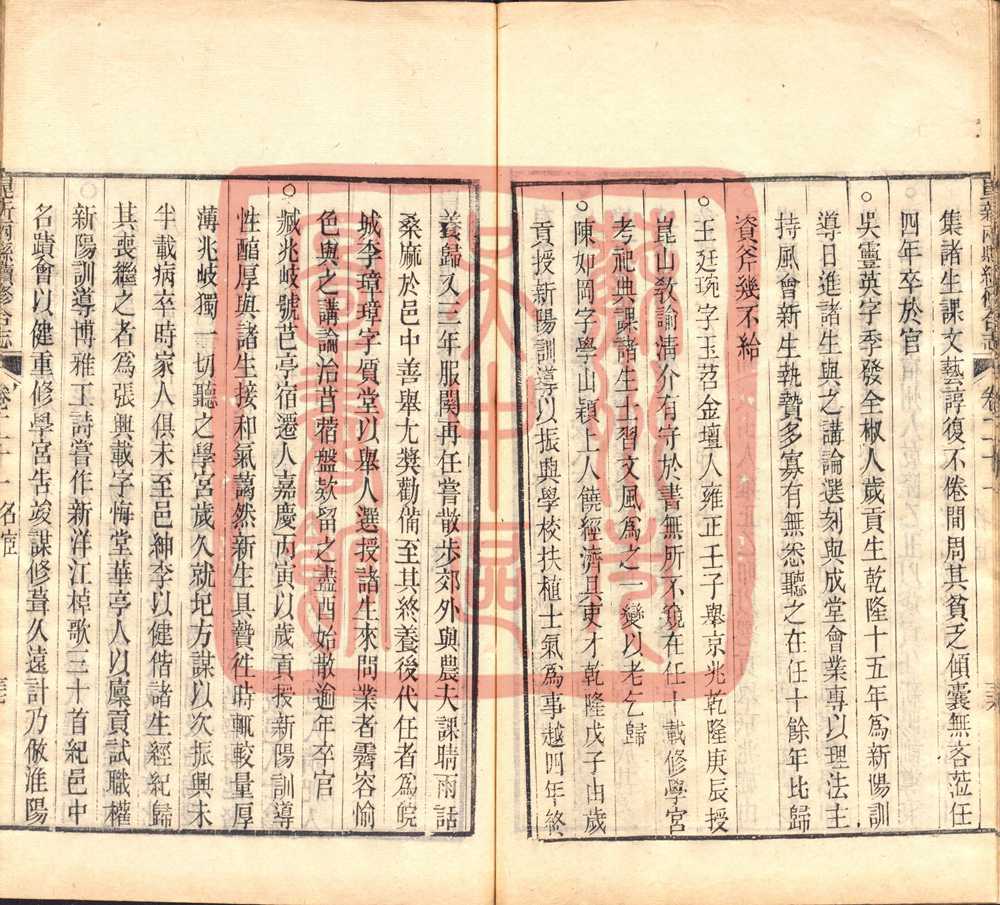 集諸生課文藝諄復不倦間周其貧乏傾囊無吝蒞任
四年卒於官
○吳靈英字季發全椒人歲貢生乾隆十五年為新陽訓
導日進諸生與之講論選刻與成堂會業專以理法主
持風會新生執贄多寡有無悉聽之在任十餘年比歸
資斧幾不給
○王廷琬字玉苕金壇人雍正壬子舉京兆乾隆庚辰授
崑山教諭清介有守於書無所不窺在任十載修學宮
考祀典課諸生士習文風為之一變以老乞歸
○陳如岡字學山穎上人饒經濟具吏才乾隆戊子由歲
貢授新陽訓導以振興學校扶植士氣為事越四年終
養歸又三年服闋再任嘗散步郊外與農夫課晴雨話
桑麻於邑中善舉尤獎勸備至其終養後代任者為皖
城李璋璋字質堂以舉人選授諸生來問業者霽容愉
色與之講論治苜蓿盤欵留之盡酉始散逾年卒官
○臧兆岐號芭亭宿遷人嘉慶丙寅以歲貢授新陽訓導
性醕厚與諸生接和氣藹然新生具贄徃時輒較量厚
薄兆岐獨一切聽之學宮歲久就圯方謀以次振興未
半載病卒時家人俱未至邑紳李以健偕諸生經紀歸
其喪繼之者為張興載字悔堂華亭人以廩貢試職權
○新陽訓導博雅工詩嘗作新洋江棹歌三十首紀邑中
名蹟會以健重修學宮告竣謀修葺久遠計乃倣淮陽
崑新兩縣續修合志
卷二十一 名宦